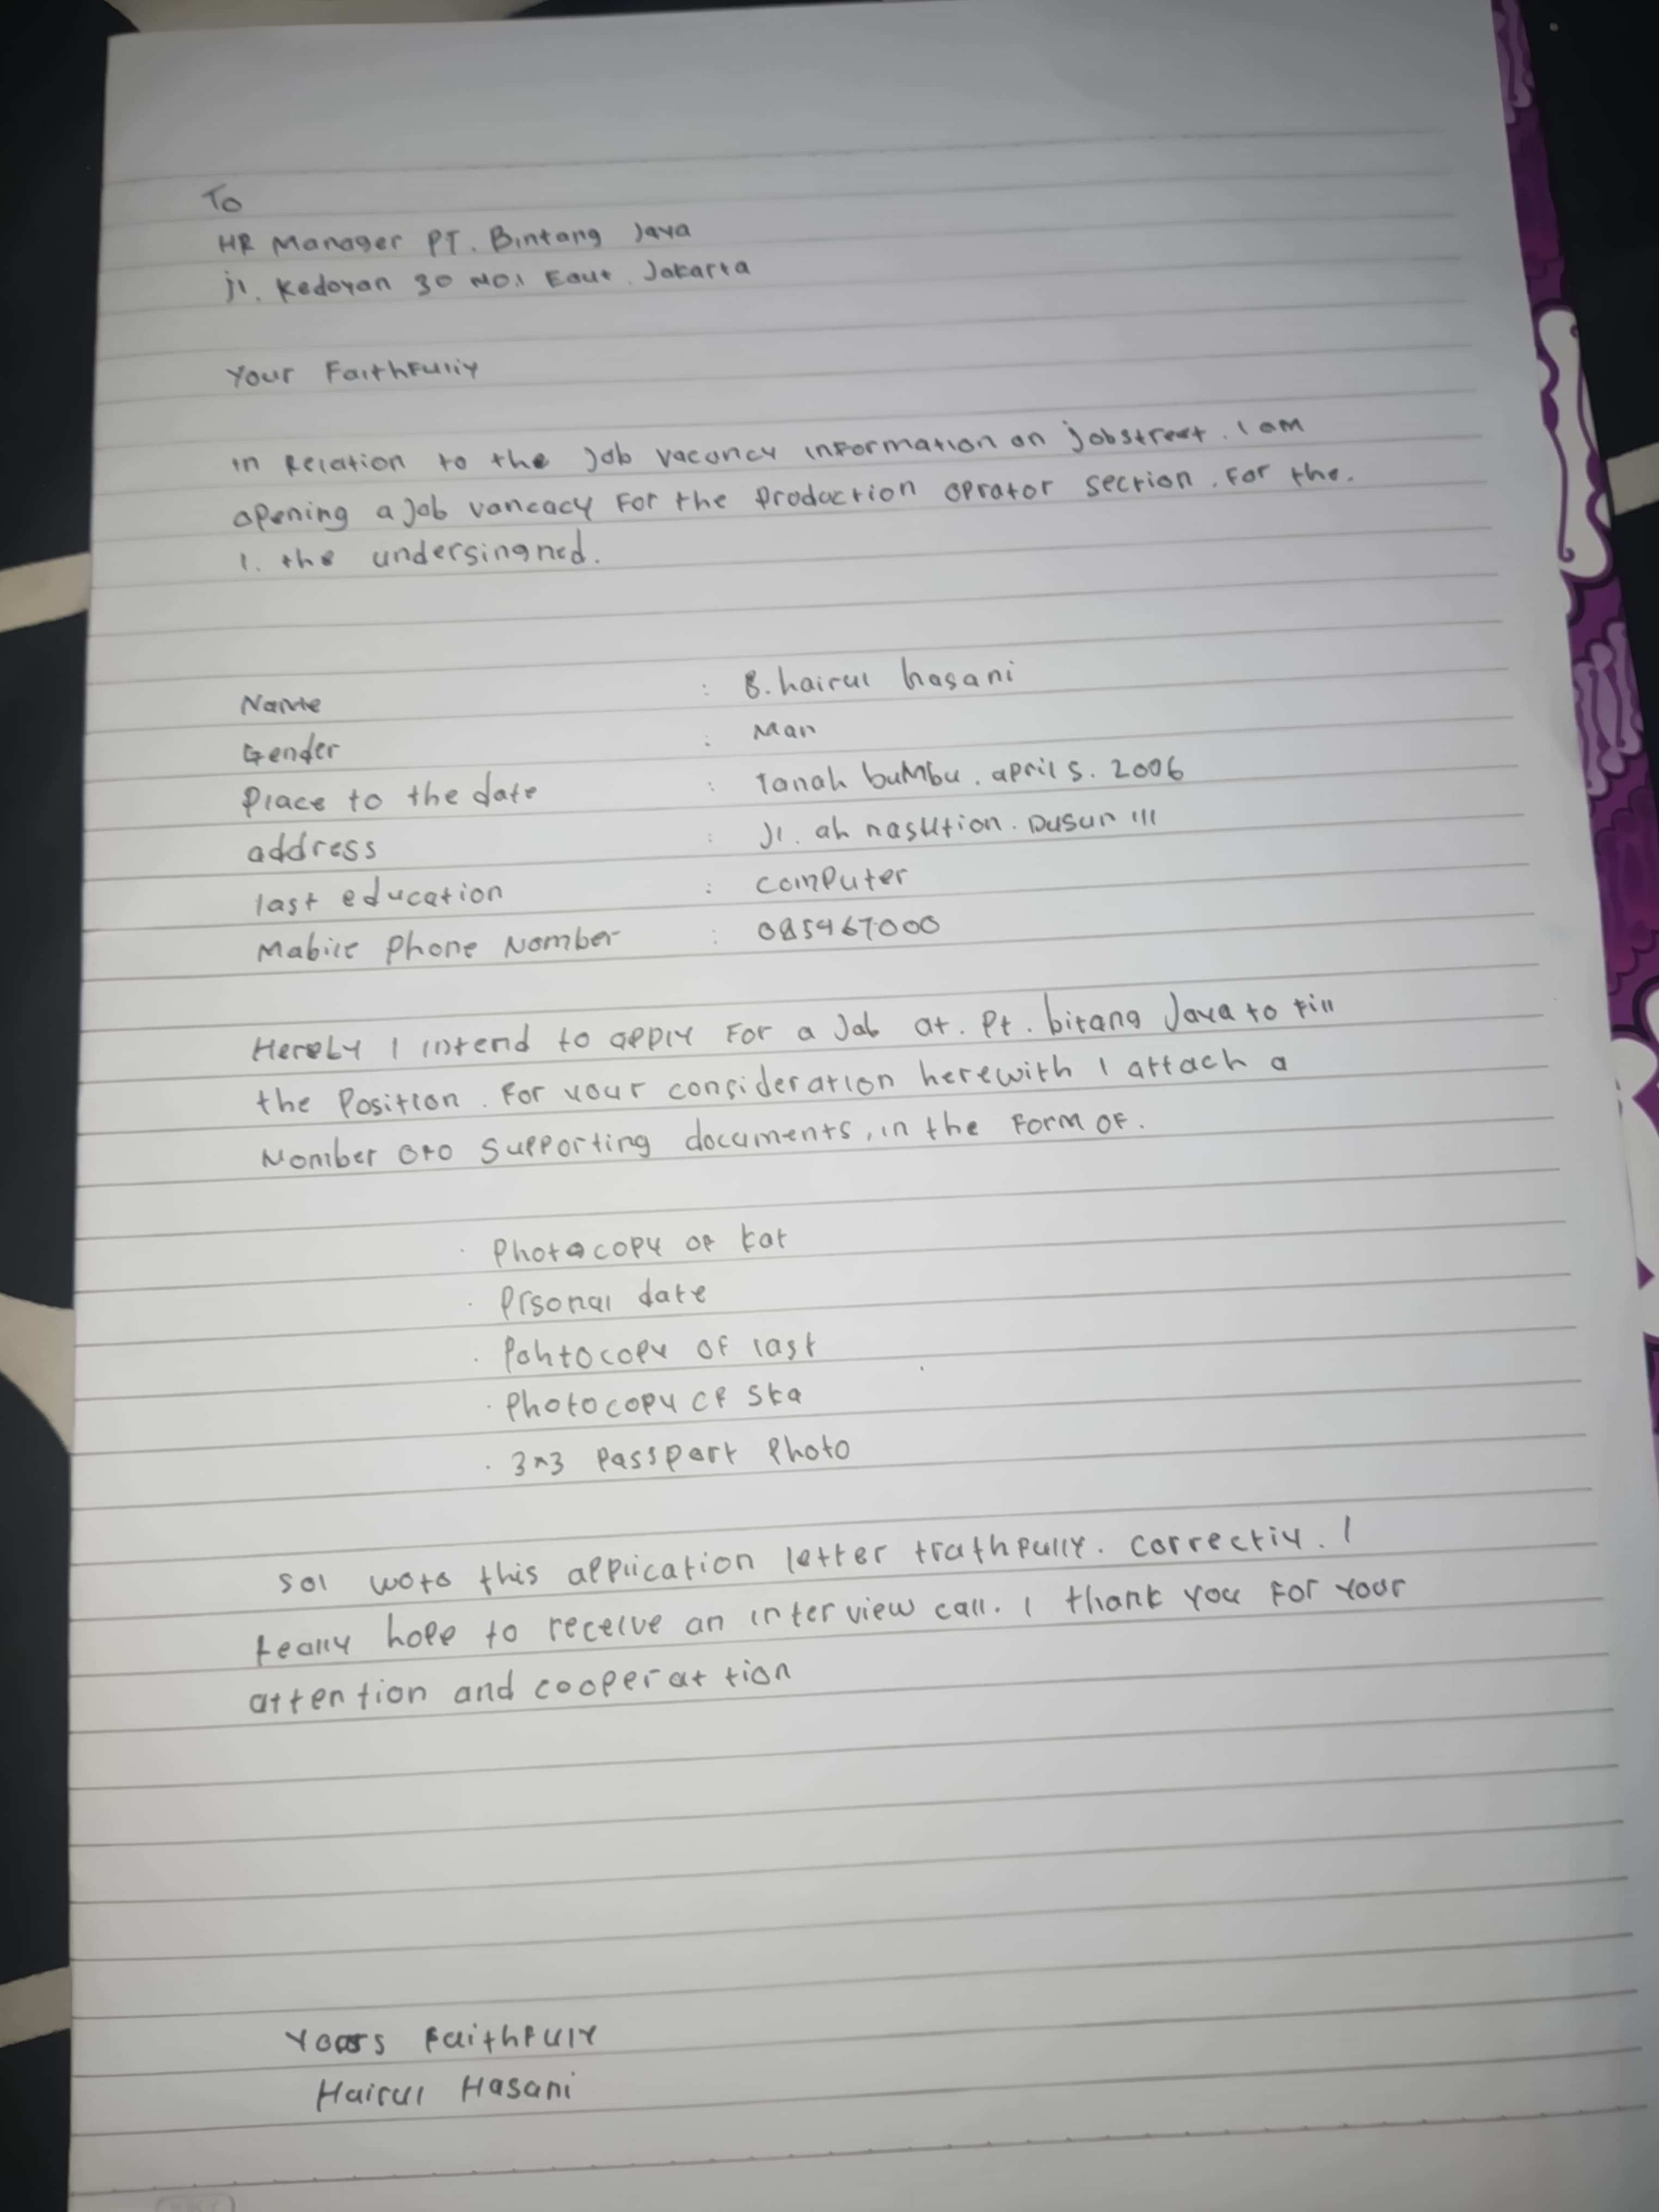 To
HR Manager PT. Bintang Jaya
jl. Kedoyan 30 NO.1 Eaut. Jakarta
Your Faithfully
in Relation to the job vacancy information on jobstreet. I am
opening a job vancacy For the production oprator section. For the.
I. the undersingned.
Name : B. hairul hasani
Gender : Man
Place to the date : Tanah bumbu. april 5. 2006
address : Jl. ah nasution. Dusun III
last education : computer
Mabile Phone Nomber : 085467000
Hereby I intend to apply For a Job at. Pt. bitang Jaya to fill
the Position. For your consideration herewith I attach a
Nomber oFo supporting documents, in the Form OF.
· Photocopy OF kat
· Prsonal date
· Pohtocopy OF last
· Photocopy CF Ska
· 3x3 Passport Photo
So I woto this application letter trathfully. correctly. I
really hope to receive an interview call. I thank you For your
attention and cooperattion
Yours Faithfuly
Hairul Hasani